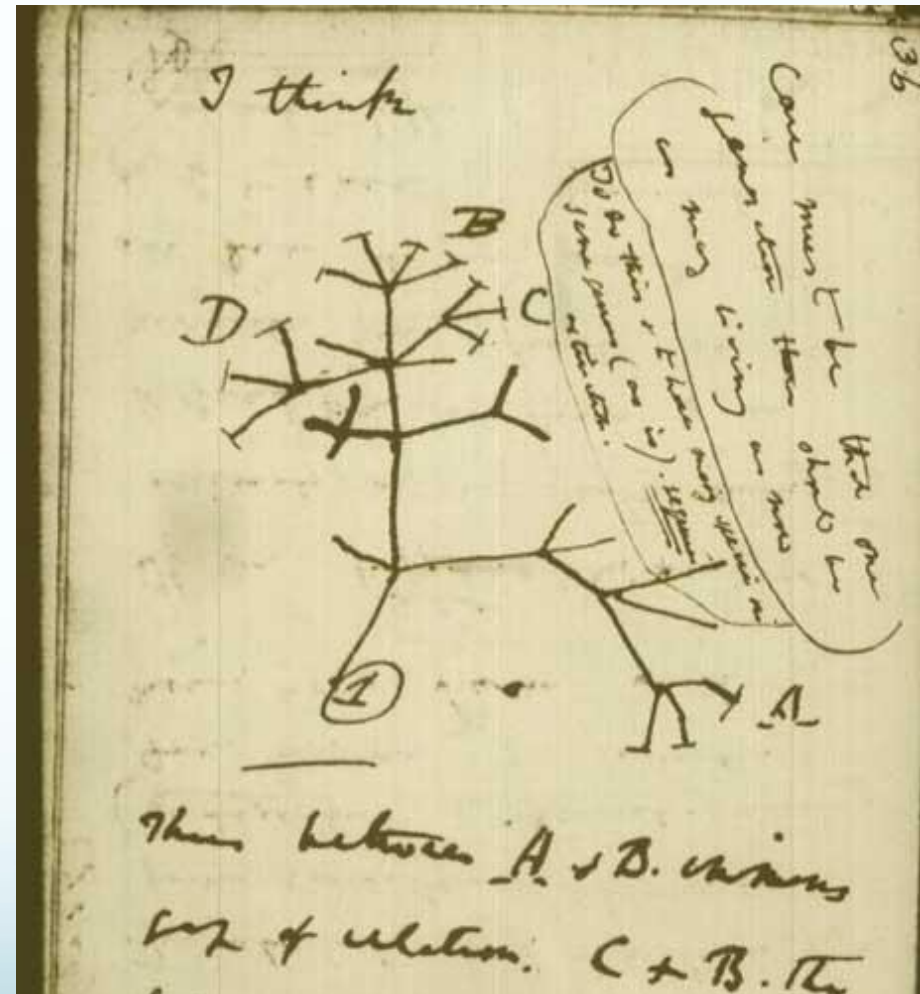 36
I think
Case must be that one
generation then should be
as many living as now
To do this & to have many species in
same genus (as is). requires
extinction.
B
C
D
A
1
Thus between A & B. immense
gap of relation. C & B. The